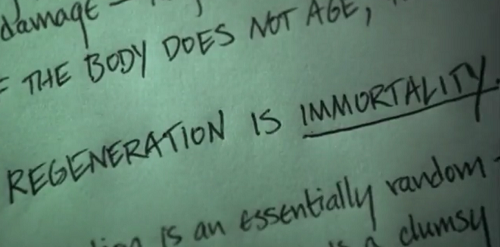 damage -
= THE BODY DOES NOT AGE,
REGENERATION IS IMMORTALITY.
is an essentially random-
a clumsy